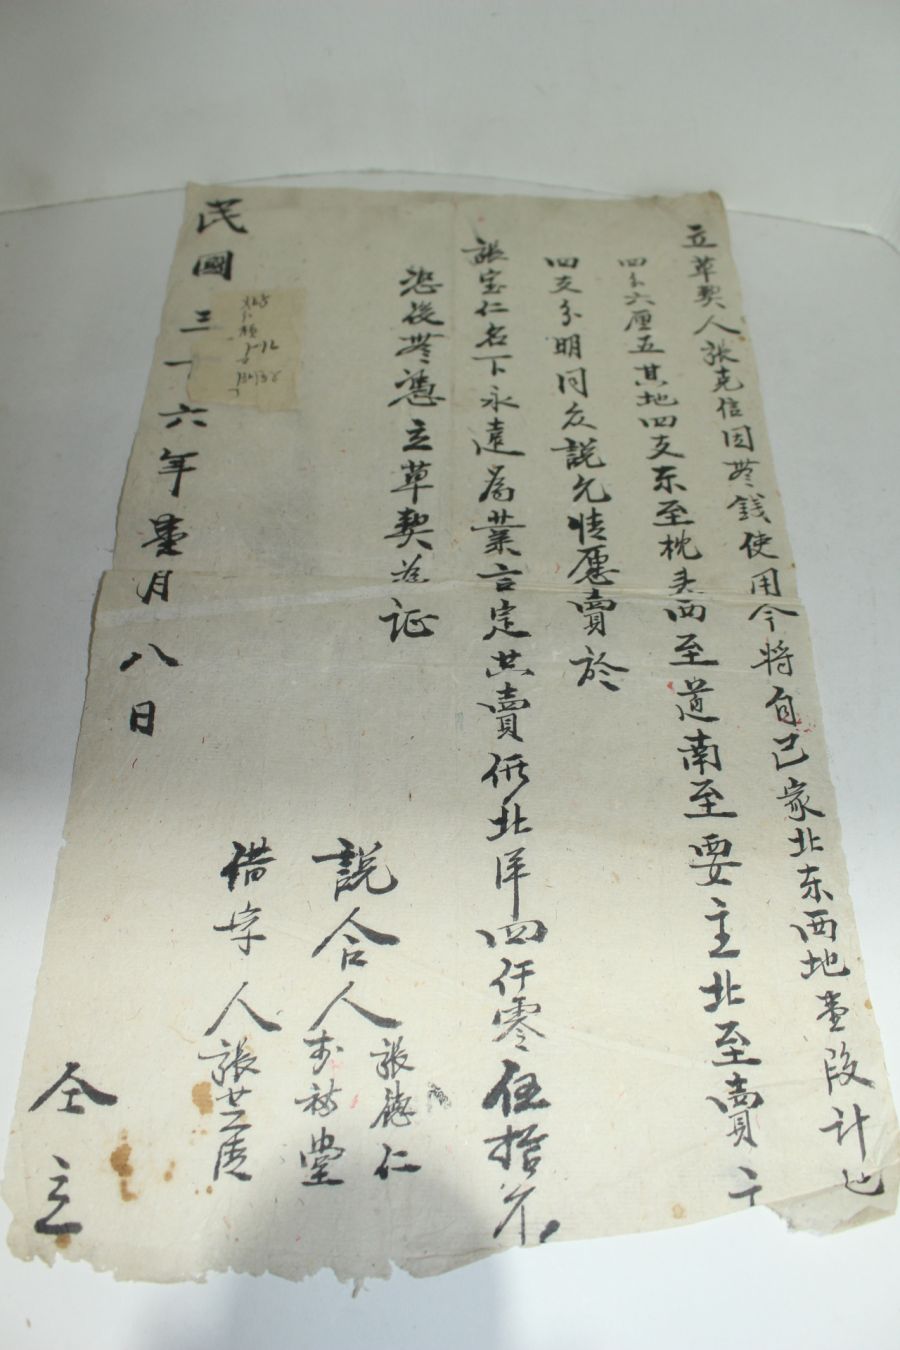 立草契人張克信因無錢使用今將自己家北东西地壹段計地
四分六厘五其地四支东至枕头西至道南至要主北至賣主
四支分明同众說允情愿賣於
張宝仁名下永遠為業言定共賣価北洋四仟零伍拾元
恐後無憑立草契為证
說合人張德仁
堂
借字人張
民國三十六年壹月八日
仝立